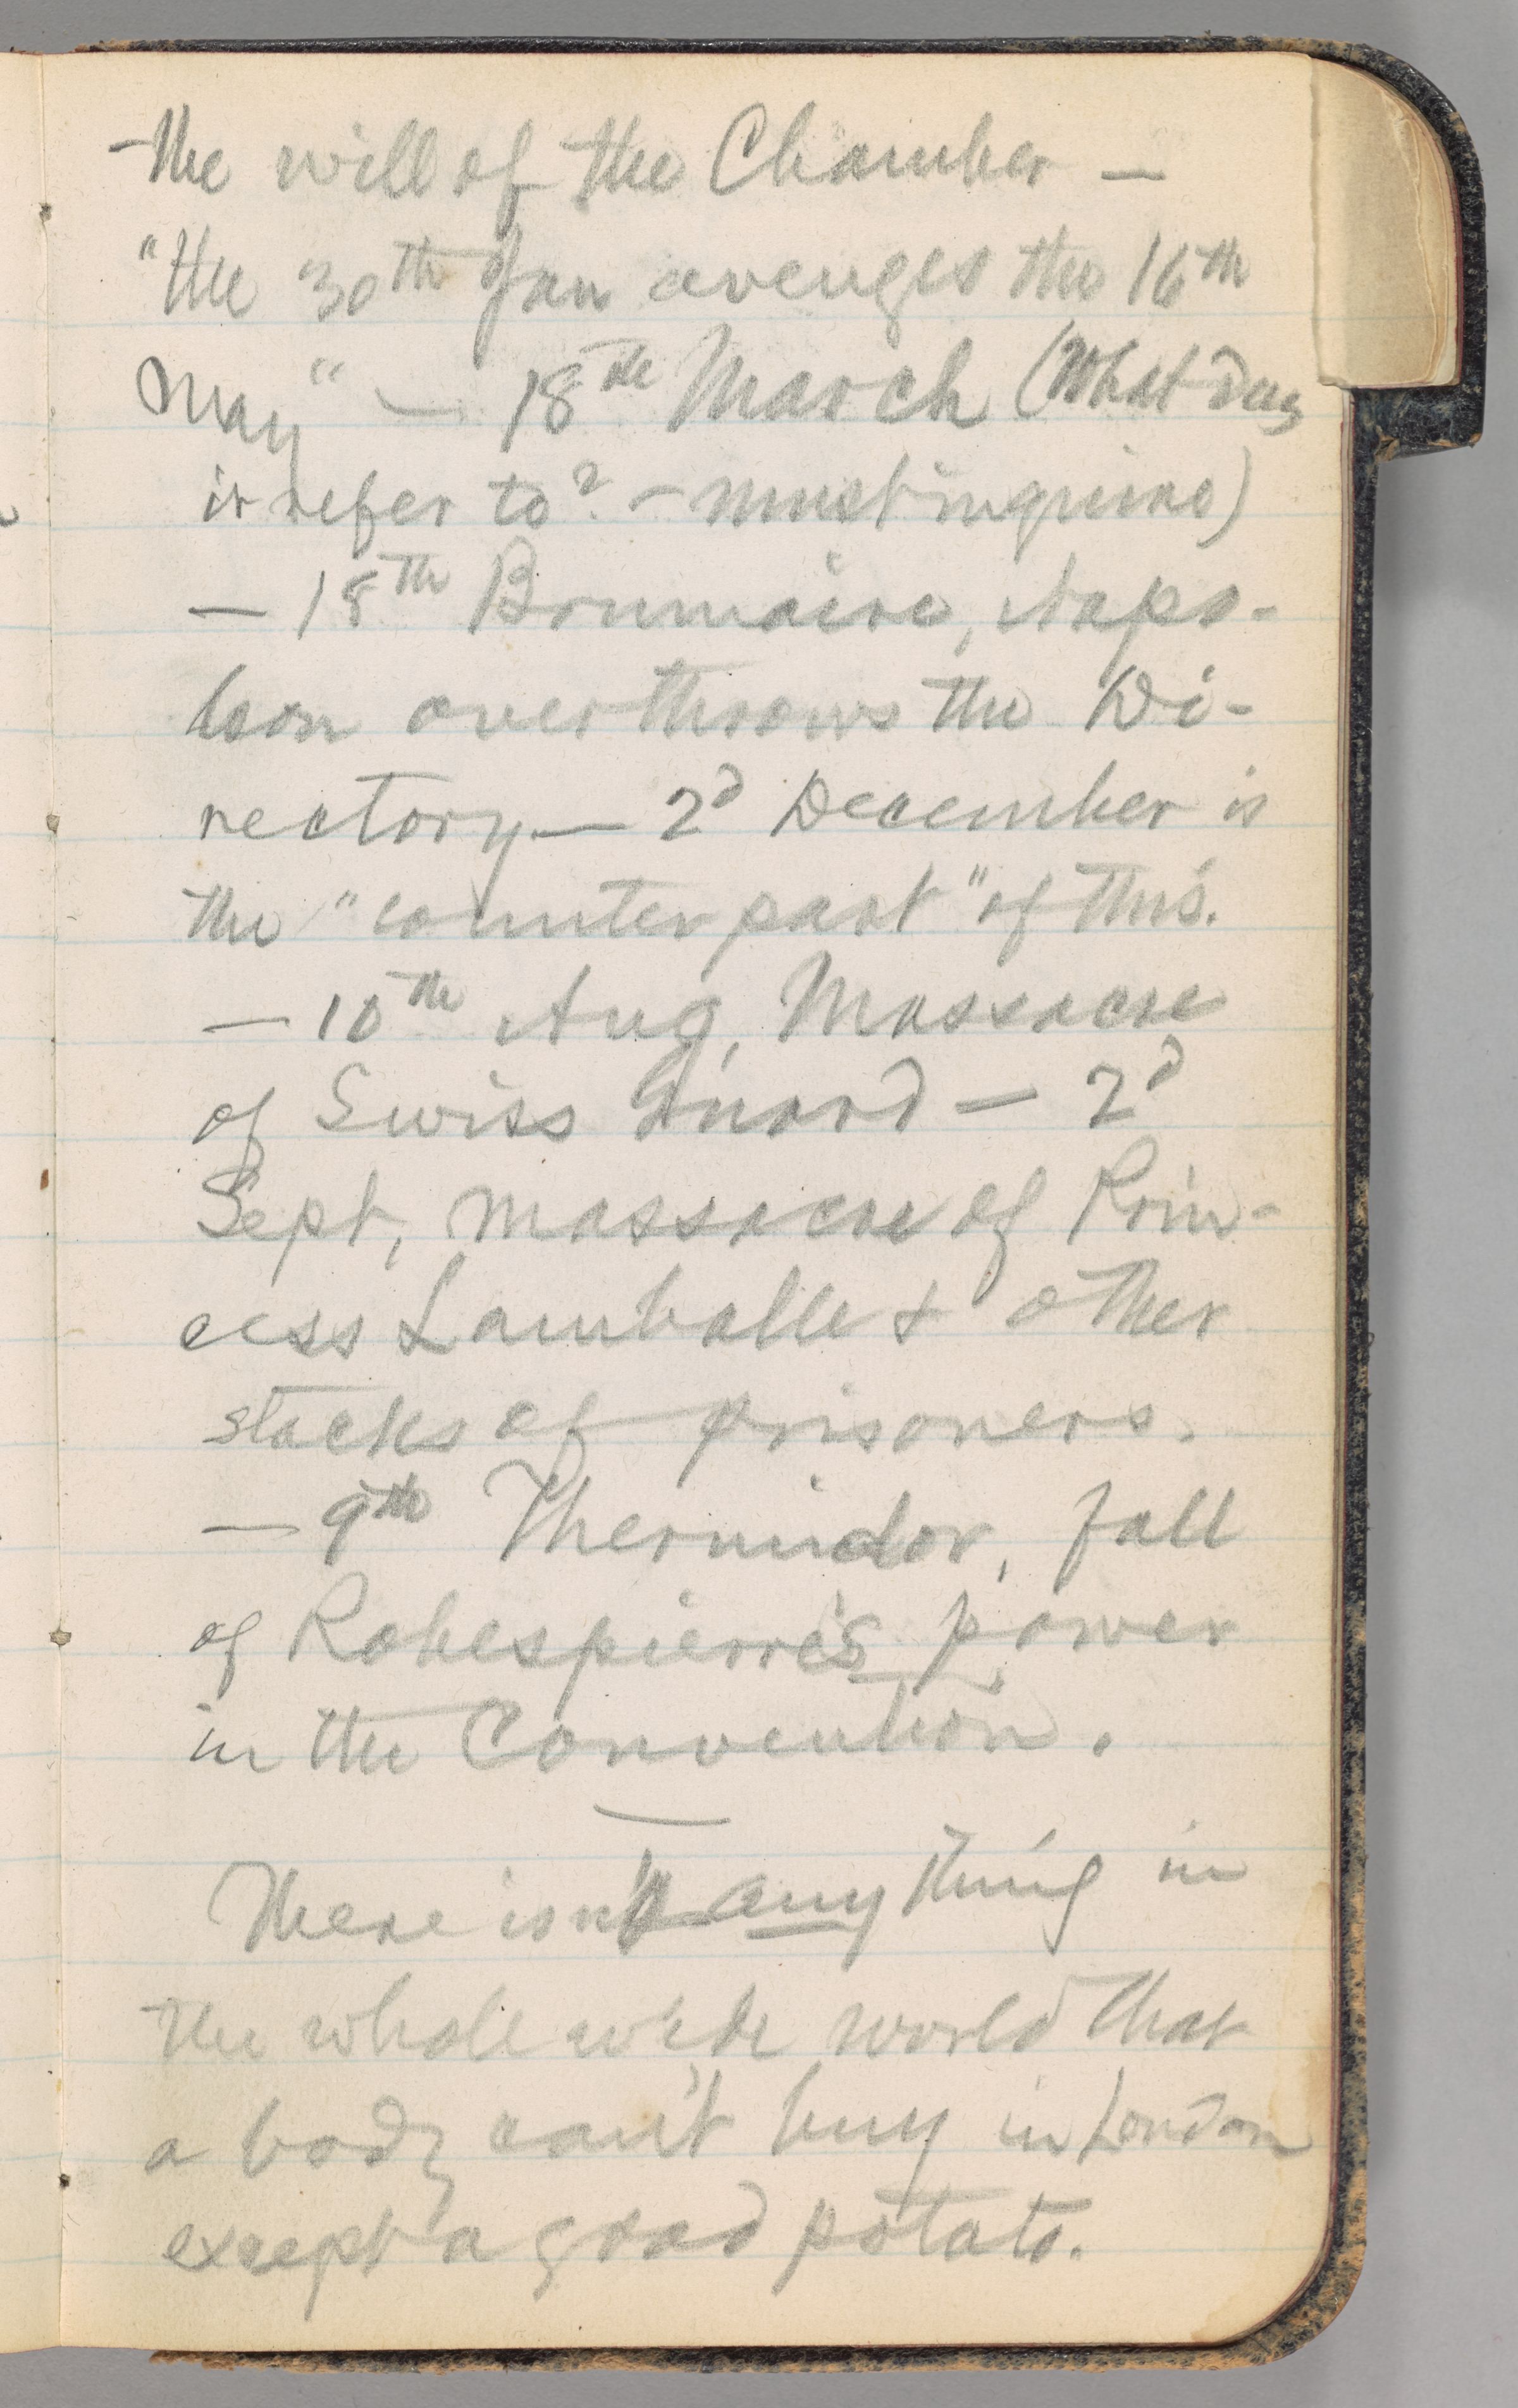 the will of the Chamber —
"the 30th Jan avenges the 16th
May" — 18th March (What does
it refer to? — must inquire)
— 18th Brumaire, Napo-
leon overthrows the Di-
rectory — 2d December is
the "counterpart" of this.
— 10th Aug, Massacre
of Swiss Guard — 2d
Sept, massacre of Prin-
cess Lamballe & other
stacks of prisoners.
— 9th Thermidor, fall
of Robespierre's power
in the Convention.
There isn't anything in
the whole wide world that
a body can't buy in London
except a good potato.